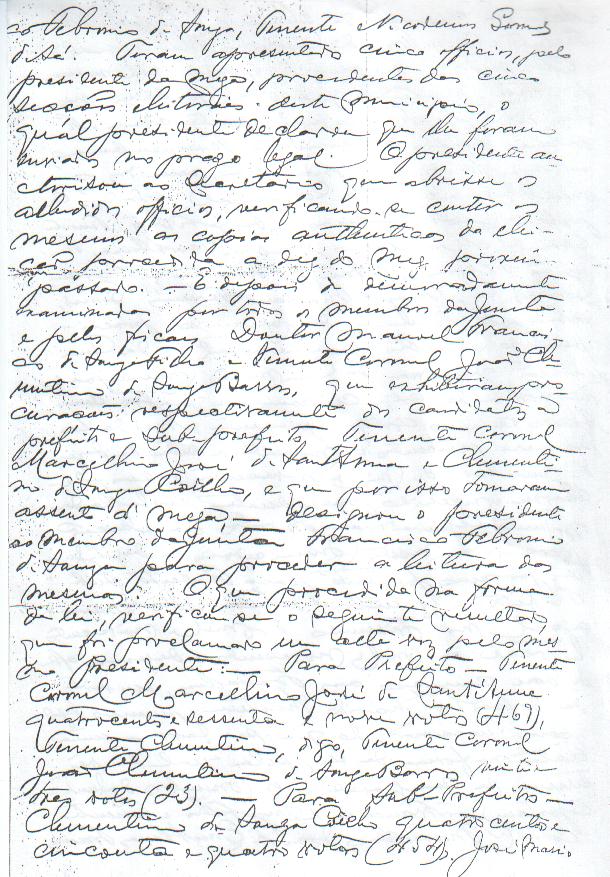 co Febronio de Souza, Tenente Nicodemos Gomes
de Sá. Foram apresentados cinco officios, pelo
presidente da mesa, procedentes das cinco
secções eleitoraes deste Municipio, o
qual presidente declarou que lhe foram
enviados no prazo legal. O presidente au
ctorisou ao Secretario que abrisse os
alludidos officios, verificando-se conter os
mesmos as copias authenticas da elei-
ção procedida a dez do mez proximo
passado. — E depois de demoradamente
examinadas por todos os membros da Junta
e pelos fiscaes Doutor Manoel Francis
co de Souza Filho e Tenente Coronel João Cle
mentino de Souza Barros, que exhibiram pro
curações respectivamente dos candidatos a
prefeito e Sub-prefeito, Tenente Coronel
Marcellino José de Sant'Anna e Clementi
no de Souza Coelho, e que por isso tomaram
assento á mesa, — designou o presidente
ao membro da Junta Francisco Febronio
de Souza para proceder a leitura dos
mesmos. O que procedida na forma
da lei, verificou-se o seguinte resultado
que foi proclamado em alta voz pelo mes
mo Presidente: — Para Prefeito — Tenente
Coronel Marcellino José de Sant'Anna
quatrocentos e sessenta e nove votos (469),
Tenente Clementino, digo, Tenente Coronel
João Clementino de Souza Barros vinte e
tres votos (23). — Para Sub-Prefeito —
Clementino de Souza Coelho quatrocentos e
cincoenta e quatro votos (454). José Maria